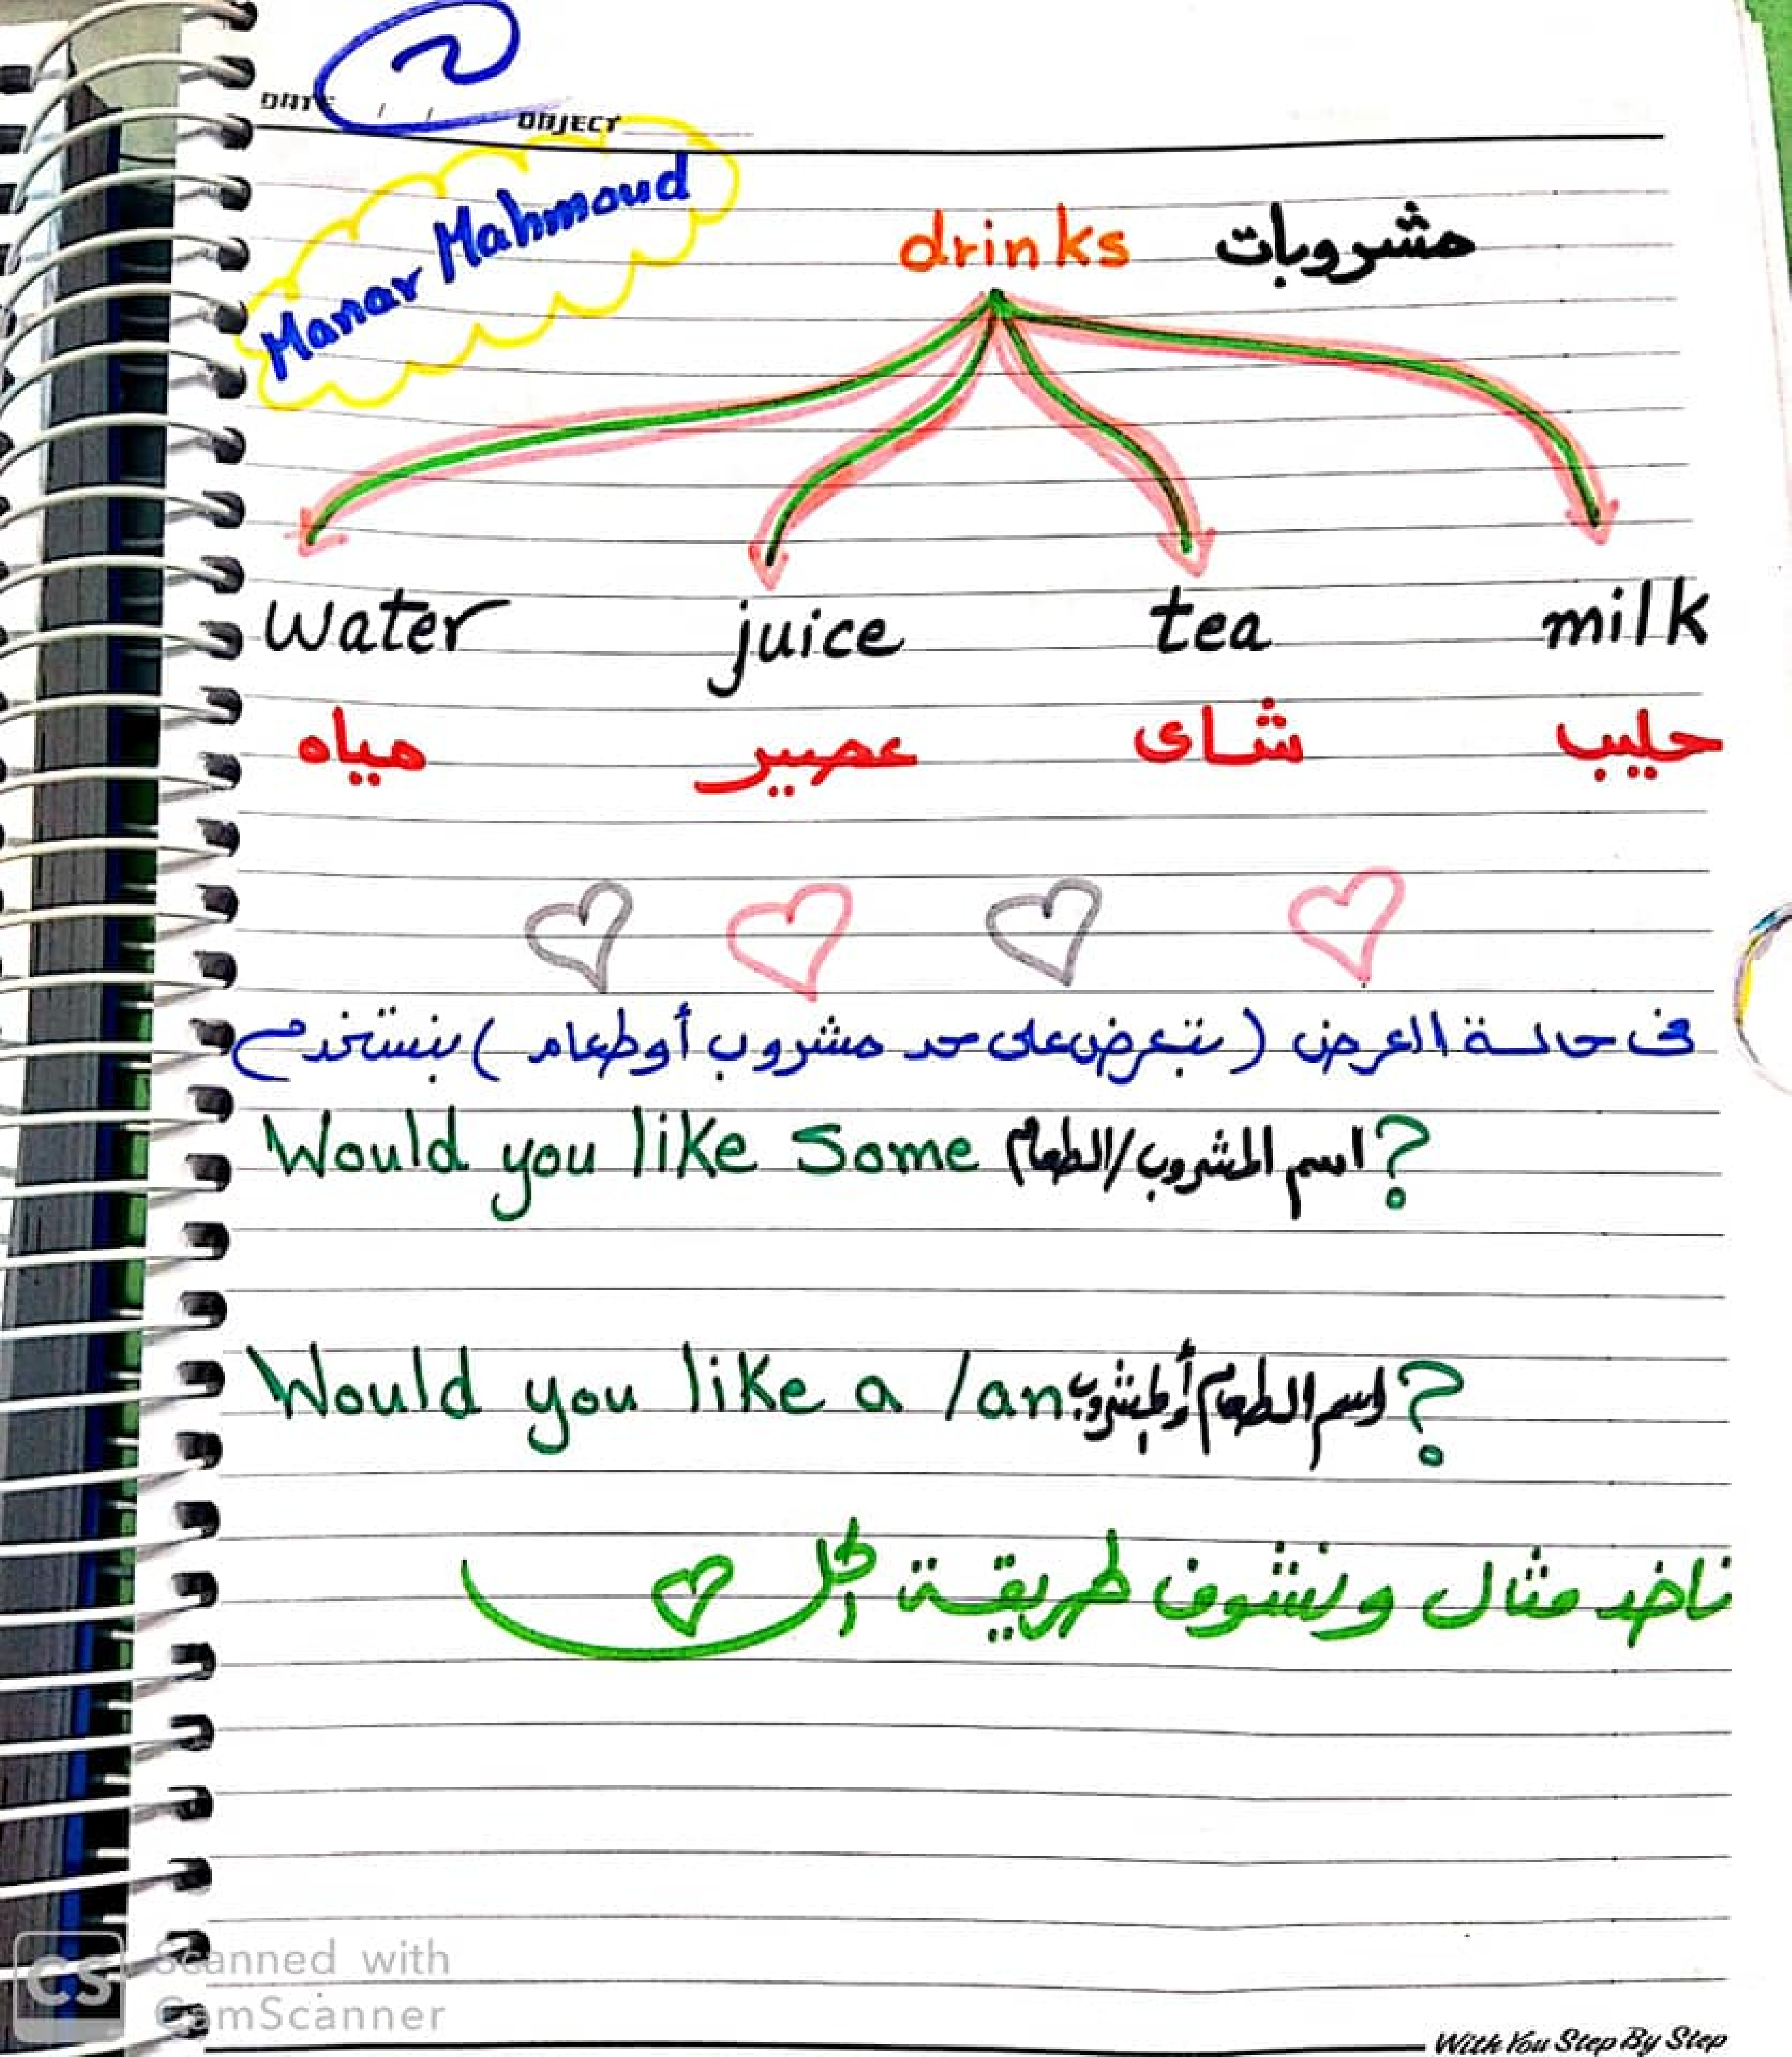 ٢
DATE / / OBJECT
Manar Mahmoud
drinks مشروبات
water juice tea milk
مياه عصير شاى حليب
فى حالة العرض (بتعرض على حد مشروب أو طعام) بنستخدم
Would you like Some اسم المشروب/الطعام ?
Would you like a /an اسم الطعام أو المشروب ?
ناخد مثال ونشوف طريقة الحل
CS Scanned with
CamScanner
With You Step By Step